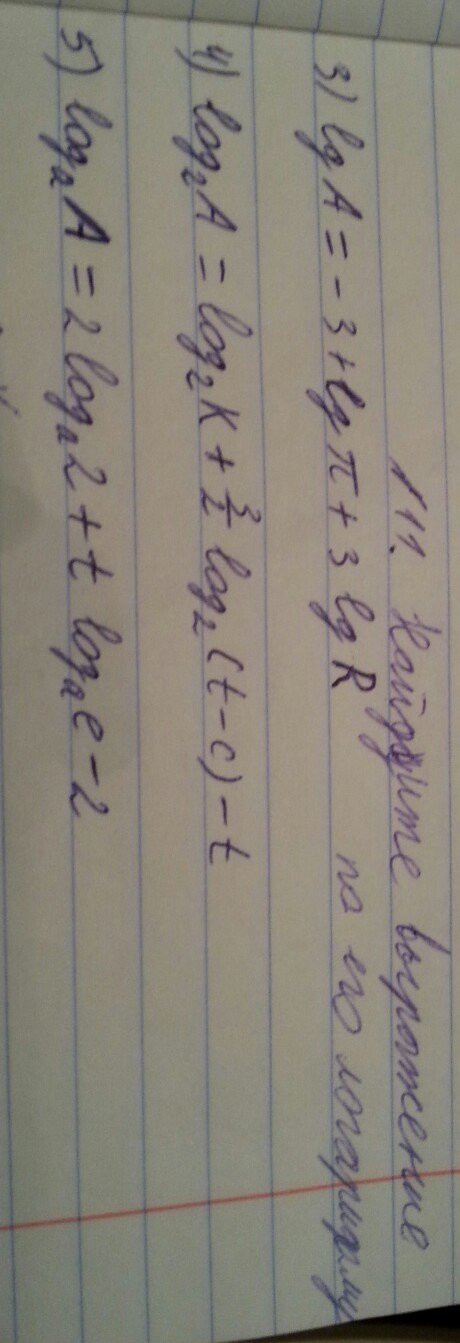 111. Найдите выражение
по его логарифму
3) lg A = -3 + lg π + 3 lg R
4) log₂A = log₂K + 3/2 log₂(t-c) - t
5) logₐA = 2 logₐ2 + t logₐe - 2